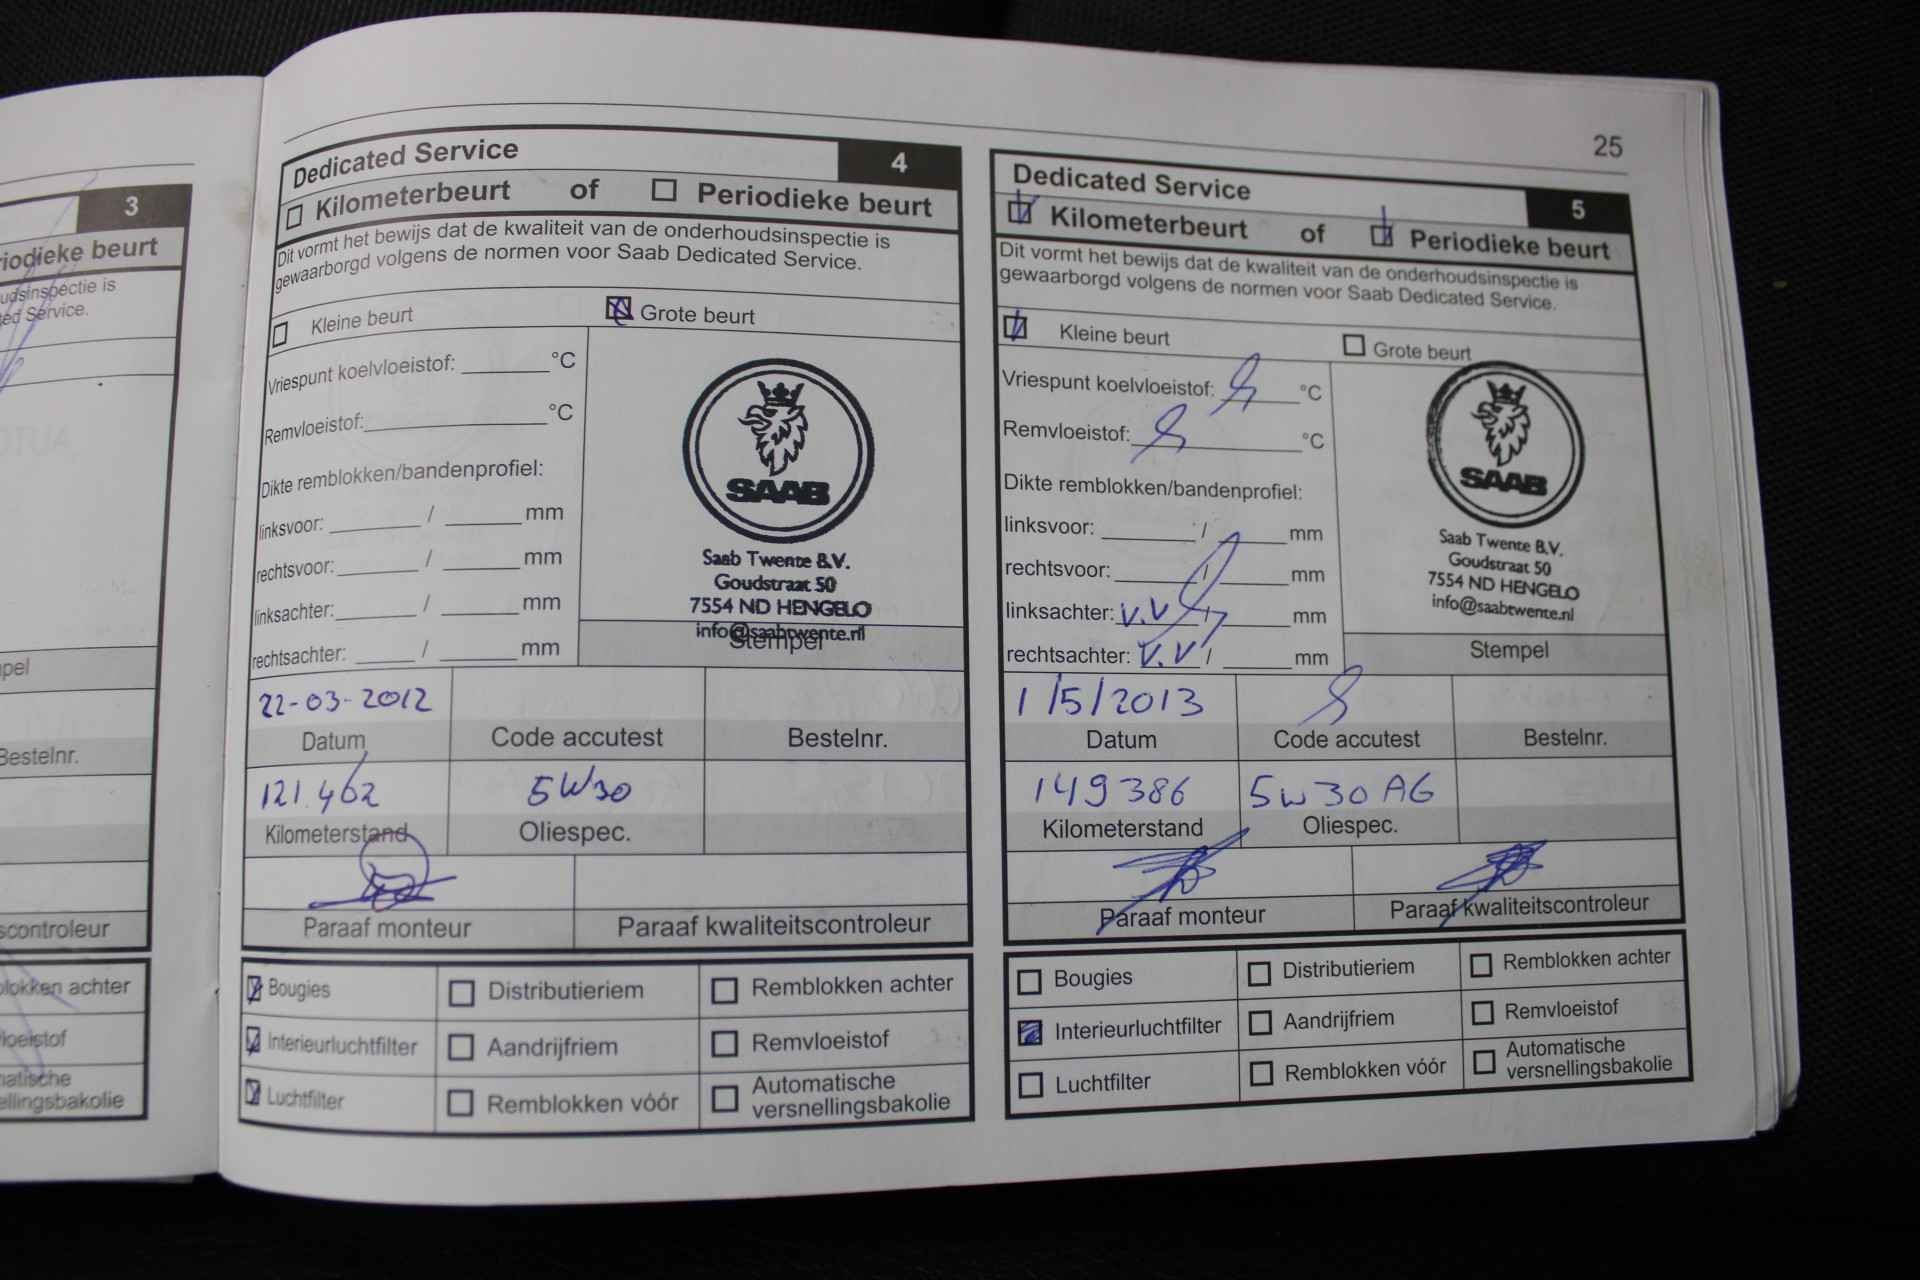 3
riodieke beurt
udsinspectie is
ted Service.
pel
Bestelnr.
scontroleur
blokken achter
vloeistof
matische
ellingsbakolie
25
Dedicated Service 4
Kilometerbeurt of Periodieke beurt
Dit vormt het bewijs dat de kwaliteit van de onderhoudsinspectie is
gewaarborgd volgens de normen voor Saab Dedicated Service.
Kleine beurt Grote beurt
Vriespunt koelvloeistof: °C
Remvloeistof: °C
Dikte remblokken/bandenprofiel:
linksvoor: / mm
rechtsvoor: / mm
linksachter: / mm
rechtsachter: / mm
SAAB
Saab Twente B.V.
Goudstraat 50
7554 ND HENGELO
info@saabtwente.nl
Stempel
22-03-2012
Datum Code accutest Bestelnr.
121.462 5W30
Kilometerstand Oliespec.
Paraaf monteur Paraaf kwaliteitscontroleur
Bougies Distributieriem Remblokken achter
Interieurluchtfilter Aandrijfriem Remvloeistof
Luchtfilter Remblokken vóór Automatische
versnellingsbakolie
Dedicated Service 5
Kilometerbeurt of Periodieke beurt
Dit vormt het bewijs dat de kwaliteit van de onderhoudsinspectie is
gewaarborgd volgens de normen voor Saab Dedicated Service.
Kleine beurt Grote beurt
Vriespunt koelvloeistof: °C
Remvloeistof: °C
Dikte remblokken/bandenprofiel:
linksvoor: / mm
rechtsvoor: / mm
linksachter: V.V / mm
rechtsachter: V.V / mm
SAAB
Saab Twente B.V.
Goudstraat 50
7554 ND HENGELO
info@saabtwente.nl
Stempel
1/5/2013
Datum Code accutest Bestelnr.
149386 5W30 AG
Kilometerstand Oliespec.
Paraaf monteur Paraaf kwaliteitscontroleur
Bougies Distributieriem Remblokken achter
Interieurluchtfilter Aandrijfriem Remvloeistof
Luchtfilter Remblokken vóór Automatische
versnellingsbakolie